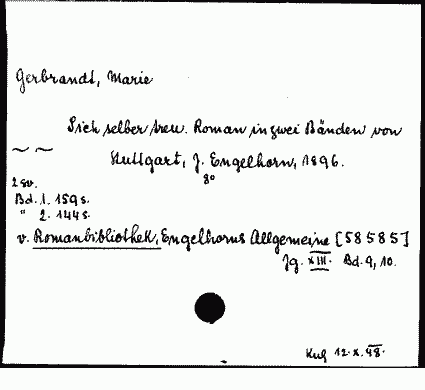 Gerbrandt, Marie
Sich selber treu. Roman in zwei Bänden von
~ ~ Stuttgart, J. Engelhorn, 1896.
8°
2 sv.
Bd. 1. 159 s.
" 2. 144 s.
v. Romanbibliothek, Engelhorns Allgemeine [58585]
Jg. XIII. Bd. 9, 10.
12.X.48.